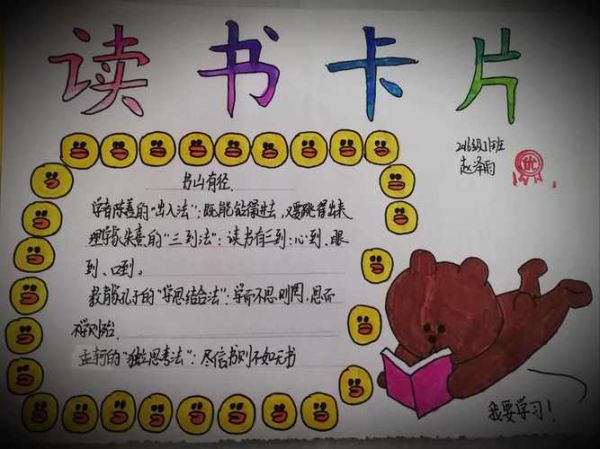 读书卡片
书山有径
学者陈善的“出入法”：既能钻得进去，又要跳得出来
理学家朱熹的“三到法”：读书有三到：心到、眼
到、口到。
教育家孔子的“学思结合法”：学而不思则罔，思而
不学则殆。
孟轲的“独立思考法”：尽信书则不如无书
赵泽雨
优
我要学习！